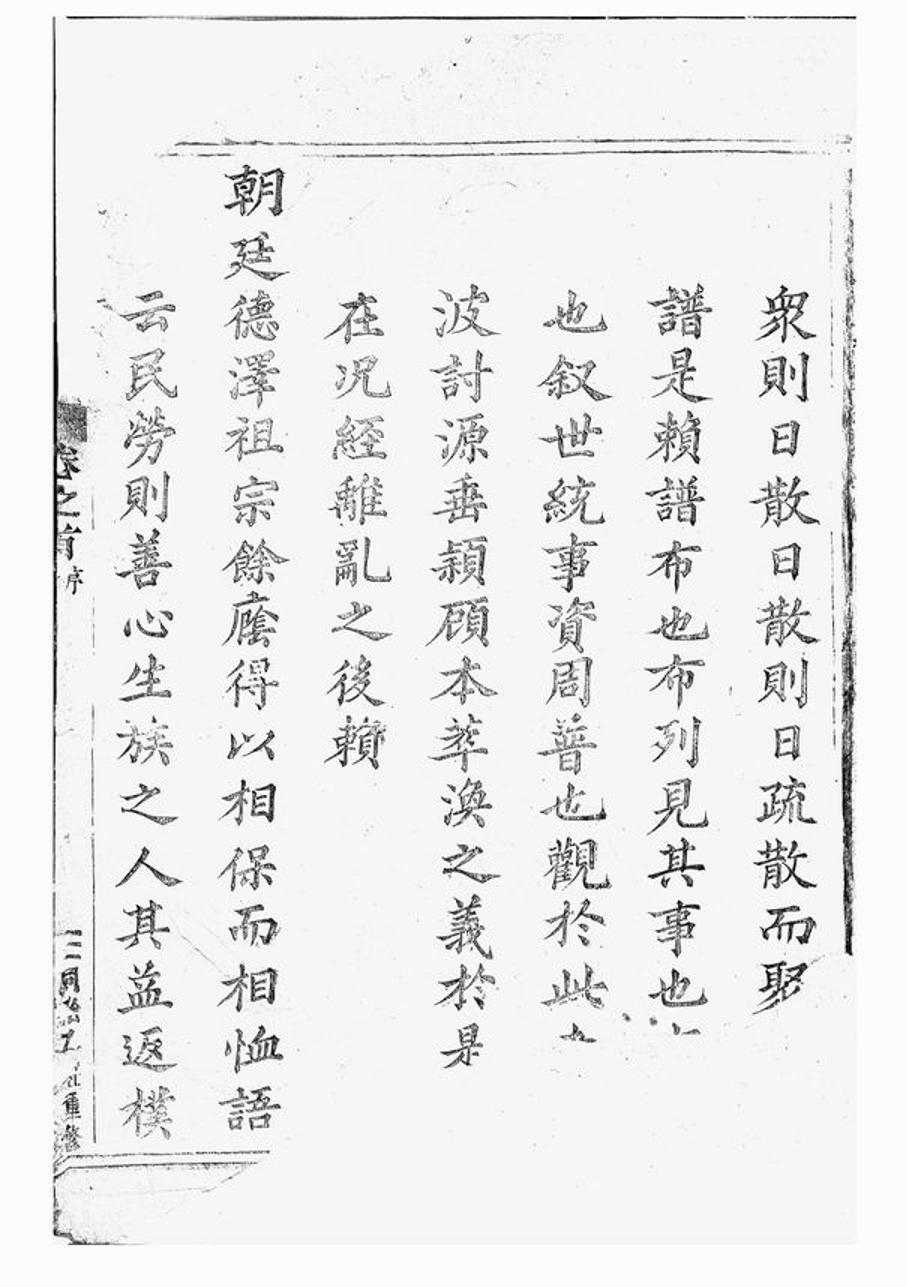 衆則日散日散則日疏散而聚
譜是賴譜布也布列見其事也
也叙世統事資周普也觀於此
波討源垂穎顧本萃渙之義於是
在况經離亂之後賴
朝廷德澤祖宗餘廕得以相保而相恤語
云民勞則善心生族之人其益返樸
卷之首 序
重脩